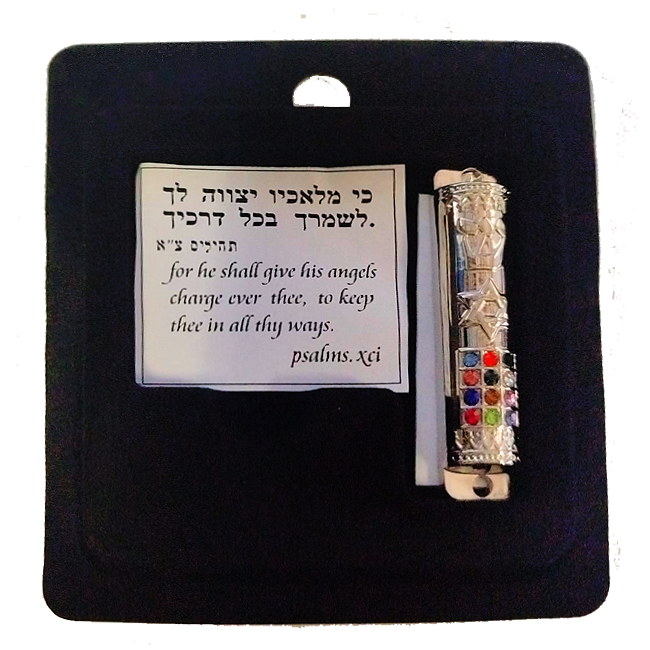 כי מלאכיו יצווה לך
לשמרך בכל דרכיך.
תהילים צ״א
for he shall give his angels
charge ever thee, to keep
thee in all thy ways.
psalms. xci